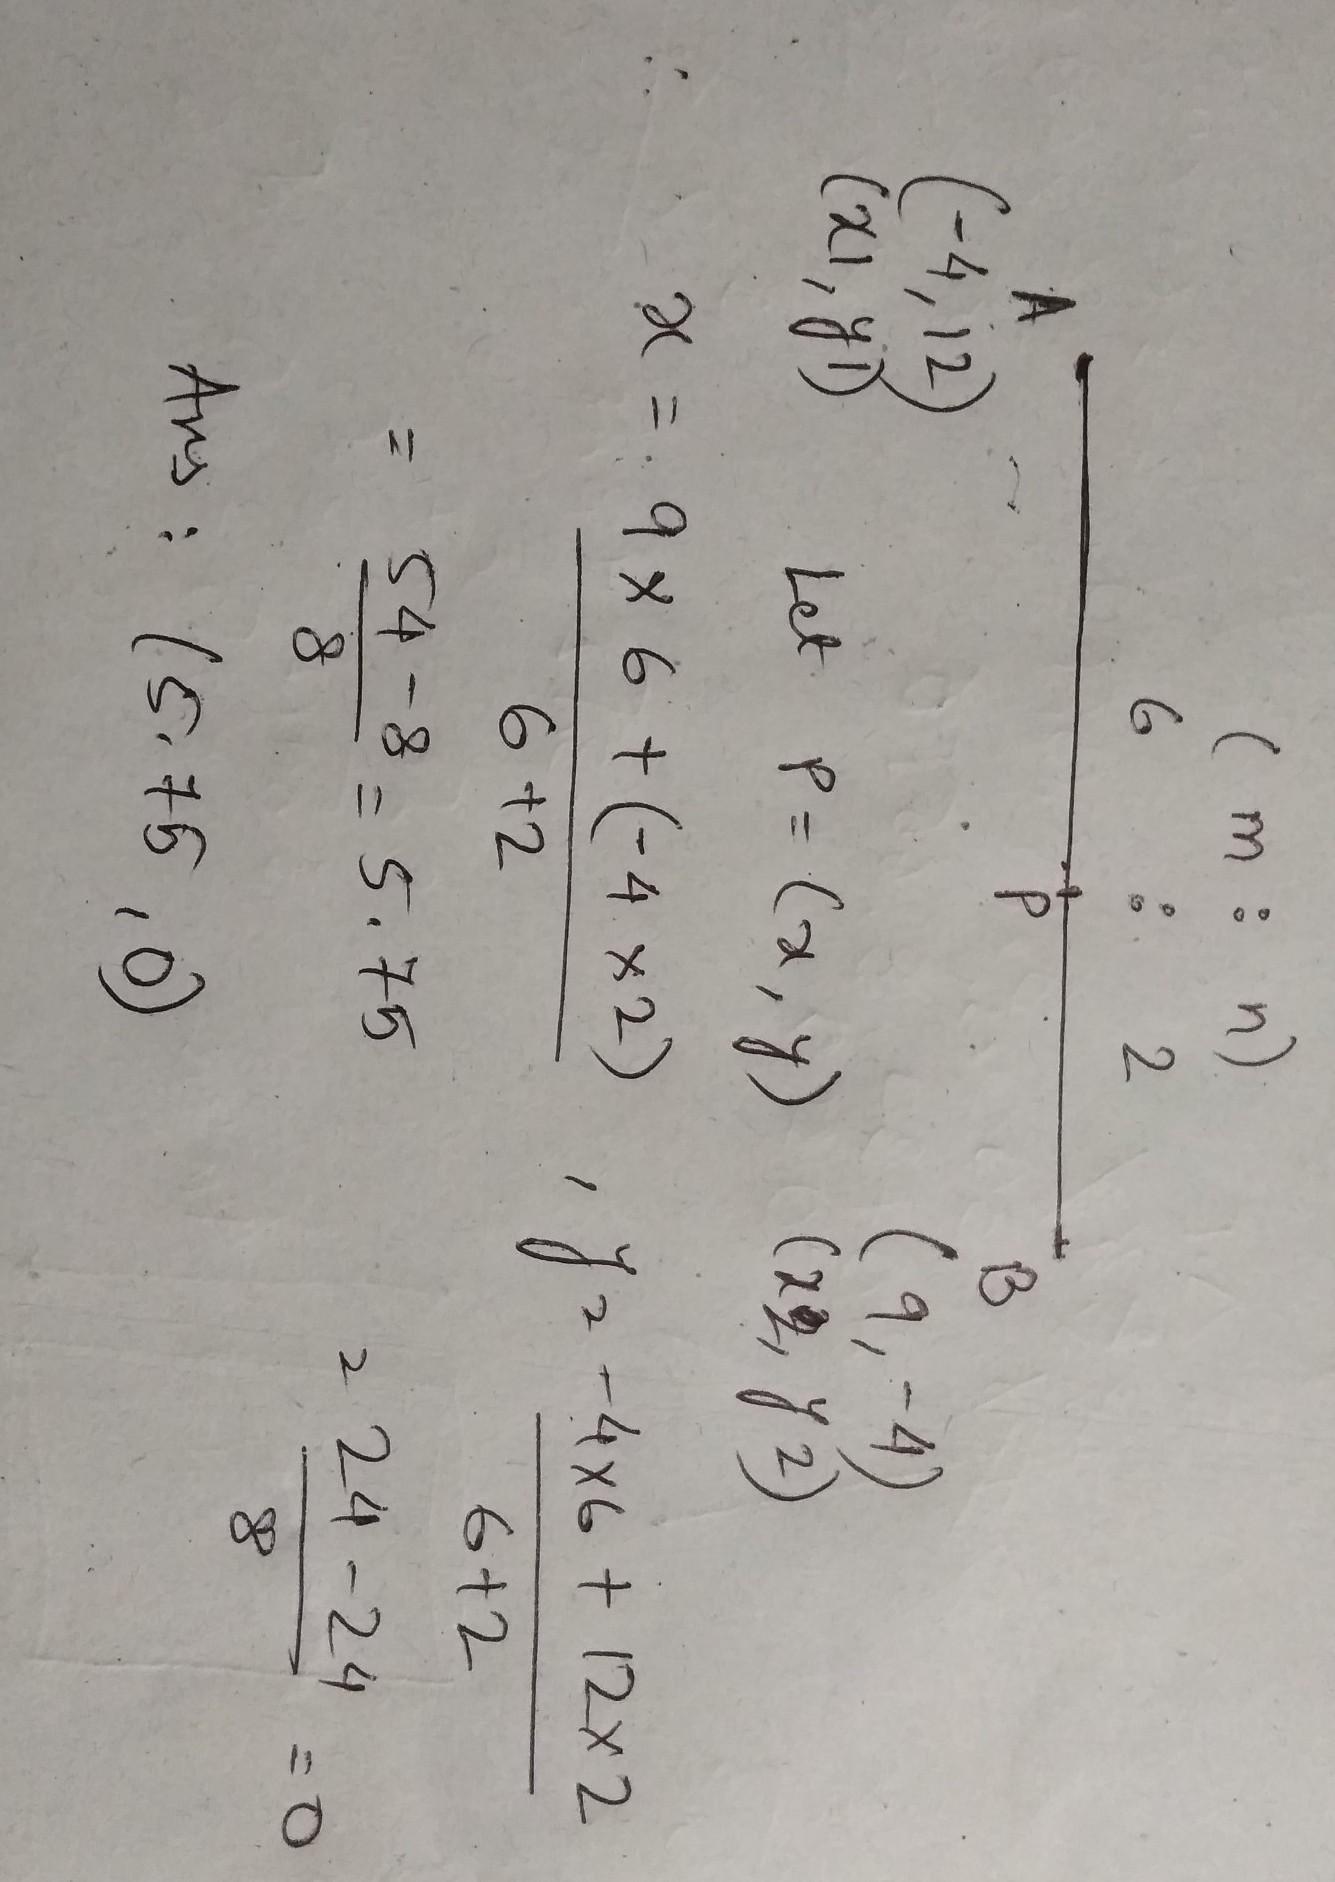 (m : n)
6 : 2
A P B
(-4, 12) (9, -4)
(x1, y1) Let P = (x, y) (x2, y2)
∴ x = 9 x 6 + (-4 x 2) / 6 + 2 , y = -4x6 + 12x2 / 6+2
= 54 - 8 / 8 = 5.75 = 24 - 24 / 8 = 0
Ans : (5.75, 0)